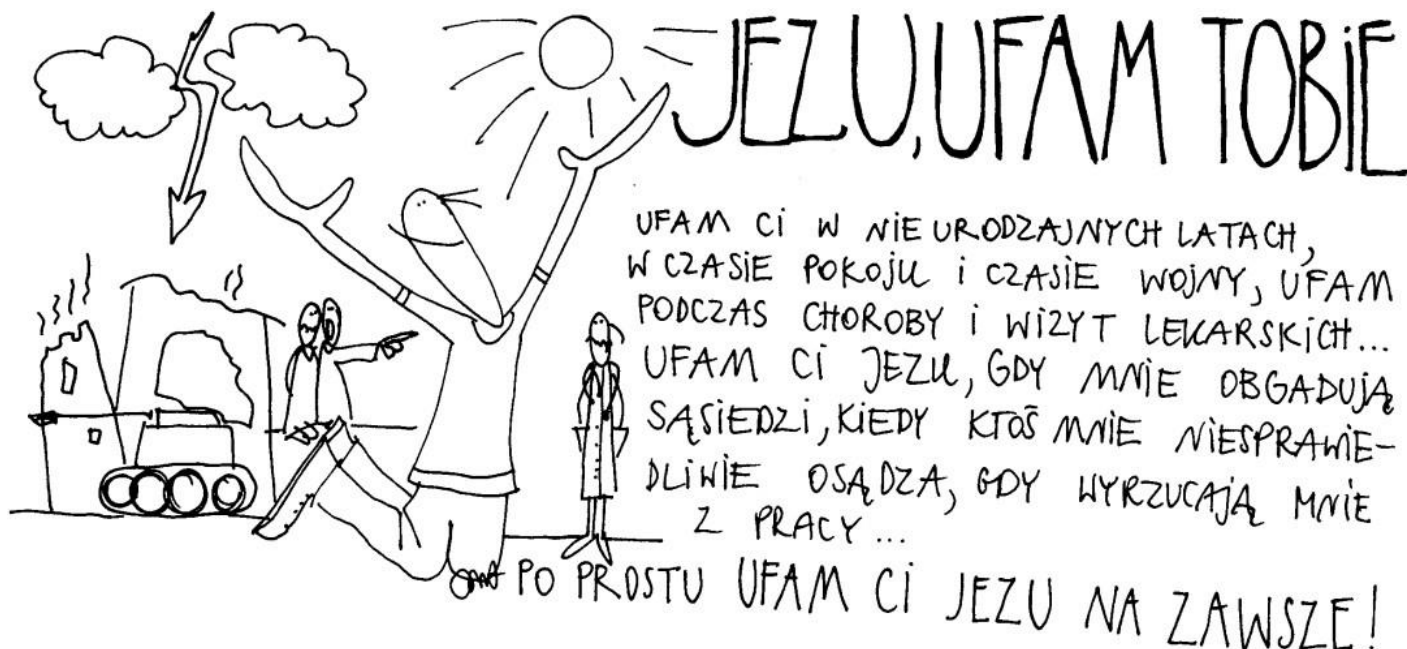 JEZU, UFAM TOBIE
UFAM CI W NIEURODZAJNYCH LATACH,
W CZASIE POKOJU I CZASIE WOJNY, UFAM
PODCZAS CHOROBY I WIZYT LEKARSKICH...
UFAM CI JEZU, GDY MNIE OBGADUJĄ
SĄSIEDZI, KIEDY KTOŚ MNIE NIESPRAWIE-
DLIWIE OSĄDZA, GDY WYRZUCAJĄ MNIE
Z PRACY...
PO PROSTU UFAM CI JEZU NA ZAWSZE!